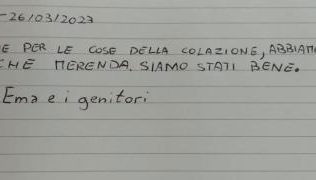 -26/03/2023
E PER LE COSE DELLA COLAZIONE, ABBIAM
CHE MERENDA. SIAMO STATI BENE.
Ema e i genitori